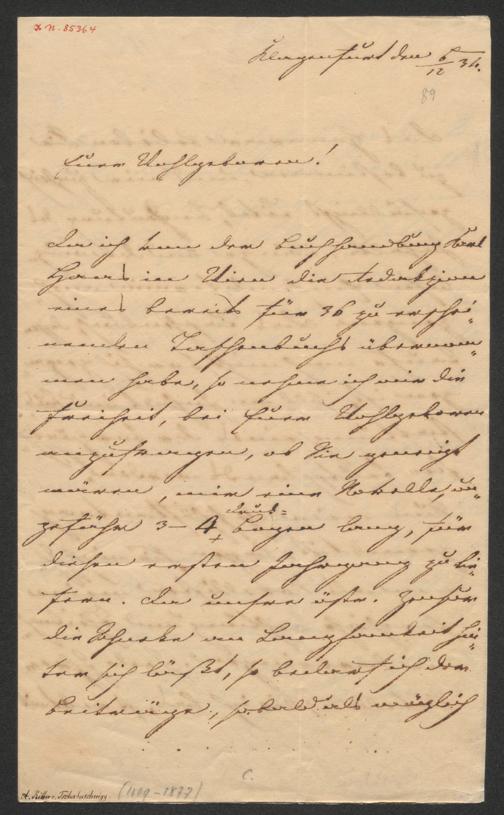 I. N. 85364
Klagenfurt den 6/12 34.
89
Euer Wohlgeboren!
Da ich von der Buchhandlung Karl
Haas in Wien die Redakzion
eines bereits für 36 zu erschei-
nenden Taschenbuchs übernom-
men habe, so nehme ich mir die
Freiheit, bei Euer Wohlgeboren
anzufragen, ob Sie geneigt
wären, mir eine Novelle, un-
gefähr 3-4 Druck-
Bogen lang, für
diesen ersten Jahrgang zu lie-
fern. Da unsre östr. Zensur
die Schnecke an Langsamkeit hin-
ter sich läßt, so bedarf ich der
Beiträge, sobald als möglich
A. Ritter v. Tschabuschnigg (1809-1877)